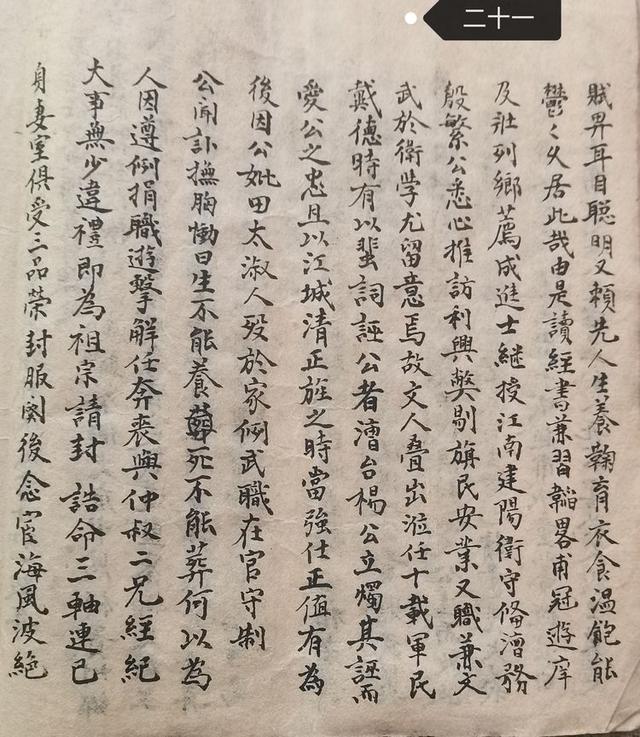 二十一
賦畀耳目聰明又賴先人生養鞠育衣食溫飽能
鬱々久居此哉由是讀經書兼習韜畧甫冠遊庠
及壯列鄉薦成進士継授江南建陽衛守俻漕務
殷繁公悉心推訪利興獘剔旗民安業又職兼文
武於衛學尤留意焉故文人疊出涖任十載軍民
戴德時有以蜚詞誣公者漕台楊公立燭其誣而
愛公之忠且以江城清正旌之時當強仕正值有為
後因公妣田太淑人歿於家例武職在官守制
公聞訃撫胸慟曰生不能養葬死不能葬何以為
人因遵例捐職遊擊解任奔喪與仲叔二兄經紀
大事無少違禮即為祖宗請封誥命三軸連已
身妻室俱受三品榮封服闋後念宦海風波絕